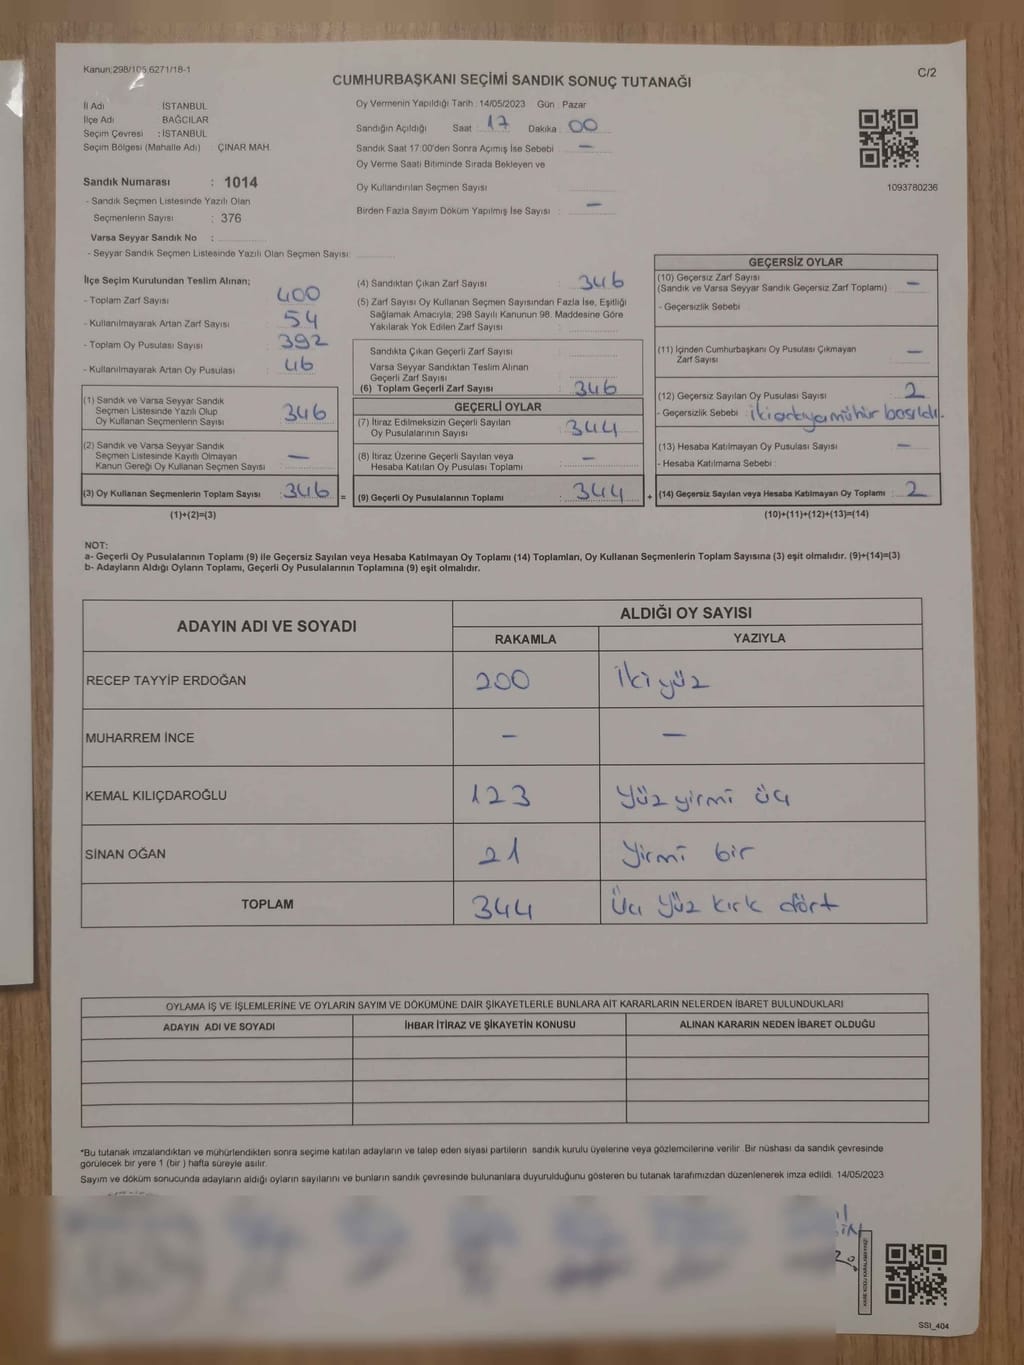 Kanun:298/105,6271/18-1
C/2
CUMHURBAŞKANI SEÇİMİ SANDIK SONUÇ TUTANAĞI
İl Adı : İSTANBUL
İlçe Adı : BAĞCILAR
Seçim Çevresi : İSTANBUL
Seçim Bölgesi (Mahalle Adı) : ÇINAR MAH.
Sandık Numarası : 1014
- Sandık Seçmen Listesinde Yazılı Olan
Seçmenlerin Sayısı : 376
Varsa Seyyar Sandık No :
- Seyyar Sandık Seçmen Listesinde Yazılı Olan Seçmen Sayısı:
Oy Vermenin Yapıldığı Tarih : 14/05/2023 Gün : Pazar
Sandığın Açıldığı Saat : 17 Dakika : 00
Sandık Saat 17:00'den Sonra Açımış İse Sebebi : —
Oy Verme Saati Bitiminde Sırada Bekleyen ve
Oy Kullandırılan Seçmen Sayısı :
Birden Fazla Sayım Döküm Yapılmış İse Sayısı : —
1093780236
İlçe Seçim Kurulundan Teslim Alınan;
- Toplam Zarf Sayısı : 400
- Kullanılmayarak Artan Zarf Sayısı : 54
- Toplam Oy Pusulası Sayısı : 392
- Kullanılmayarak Artan Oy Pusulası : 46
(1) Sandık ve Varsa Seyyar Sandık
Seçmen Listesinde Yazılı Olup
Oy Kullanan Seçmenlerin Sayısı : 346
(2) Sandık ve Varsa Seyyar Sandık
Seçmen Listesinde Kayıtlı Olmayan
Kanun Gereği Oy Kullanan Seçmen Sayısı : —
(3) Oy Kullanan Seçmenlerin Toplam Sayısı : 346 =
(1)+(2)=(3)
(4) Sandıktan Çıkan Zarf Sayısı : 346
(5) Zarf Sayısı Oy Kullanan Seçmen Sayısından Fazla İse, Eşitliği
Sağlamak Amacıyla; 298 Sayılı Kanunun 98. Maddesine Göre
Yakılarak Yok Edilen Zarf Sayısı :
Sandıkta Çıkan Geçerli Zarf Sayısı :
Varsa Seyyar Sandıktan Teslim Alınan
Geçerli Zarf Sayısı :
(6) Toplam Geçerli Zarf Sayısı : 346
GEÇERLİ OYLAR
(7) İtiraz Edilmeksizin Geçerli Sayılan
Oy Pusulalarının Sayısı : 344
(8) İtiraz Üzerine Geçerli Sayılan veya
Hesaba Katılan Oy Pusulası Toplamı : —
(9) Geçerli Oy Pusulalarının Toplamı : 344 +
GEÇERSİZ OYLAR
(10) Geçersiz Zarf Sayısı
(Sandık ve Varsa Seyyar Sandık Geçersiz Zarf Toplamı) : —
- Geçersizlik Sebebi :
(11) İçinden Cumhurbaşkanı Oy Pusulası Çıkmayan
Zarf Sayısı : —
(12) Geçersiz Sayılan Oy Pusulası Sayısı : 2
- Geçersizlik Sebebi : mühür basıldı.
(13) Hesaba Katılmayan Oy Pusulası Sayısı : —
- Hesaba Katılmama Sebebi :
(14) Geçersiz Sayılan veya Hesaba Katılmayan Oy Toplamı : 2
(10)+(11)+(12)+(13)=(14)
NOT:
a- Geçerli Oy Pusulalarının Toplamı (9) ile Geçersiz Sayılan veya Hesaba Katılmayan Oy Toplamı (14) Toplamları, Oy Kullanan Seçmenlerin Toplam Sayısına (3) eşit olmalıdır. (9)+(14)=(3)
b- Adayların Aldığı Oyların Toplamı, Geçerli Oy Pusulalarının Toplamına (9) eşit olmalıdır.
ADAYIN ADI VE SOYADI
ALDIĞI OY SAYISI
RAKAMLA YAZIYLA
RECEP TAYYİP ERDOĞAN 200 İki yüz
MUHARREM İNCE — —
KEMAL KILIÇDAROĞLU 123 Yüz yirmi üç
SİNAN OĞAN 21 Yirmi bir
TOPLAM 344 Üç yüz kırk dört
OYLAMA İŞ VE İŞLEMLERİNE VE OYLARIN SAYIM VE DÖKÜMÜNE DAİR ŞİKAYETLERLE BUNLARA AİT KARARLARIN NELERDEN İBARET BULUNDUKLARI
ADAYIN ADI VE SOYADI İHBAR İTİRAZ VE ŞİKAYETİN KONUSU ALINAN KARARIN NEDEN İBARET OLDUĞU
*Bu tutanak imzalandıktan ve mühürlendikten sonra seçime katılan adayların ve talep eden siyasi partilerin sandık kurulu üyelerine veya gözlemcilerine verilir. Bir nüshası da sandık çevresinde
görülecek bir yere 1 (bir) hafta süreyle asılır.
Sayım ve döküm sonucunda adayların aldığı oyların sayılarını ve bunların sandık çevresinde bulunanlara duyurulduğunu gösteren bu tutanak tarafımızdan düzenlenerek imza edildi. 14/05/2023
SSI_404